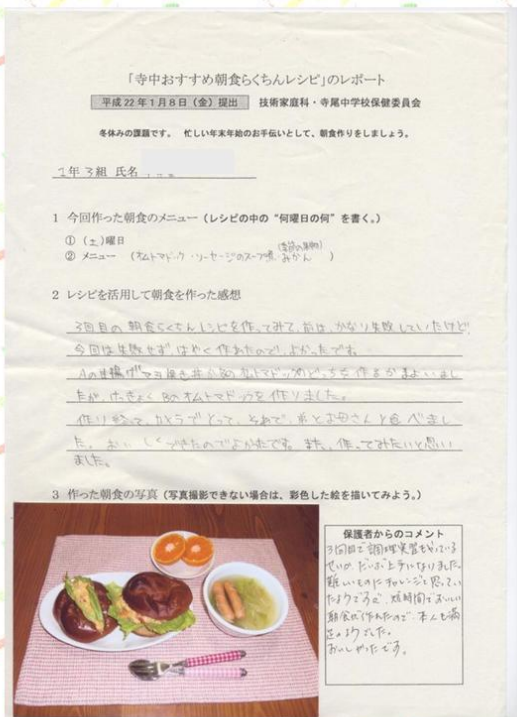 「寺中おすすめ朝食らくちんレシピ」のレポート
平成22年1月8日（金）提出　技術家庭科・寺尾中学校保健委員会
冬休みの課題です。　忙しい年末年始のお手伝いとして、朝食作りをしましょう。
1年 3組 氏名
1 今回作った朝食のメニュー（レシピの中の“何曜日の何”を書く。）
①（土）曜日
（季節の果物）
② メニュー （オムトマドック・ソーセージのスープ煮・みかん）
2 レシピを活用して朝食を作った感想
3回目の朝食らくちんレシピを作ってみて、前は、かなり失敗していたけど、
今回は失敗せず、はやく作れたので、よかったです。
Aの生揚げマヨ焼き丼かBのオムトマドックのどっちを作るかまよいまし
たが、けっきょくBのオムトマドックを作りました。
作り終って、カメラでとって、そのあとで、弟とお母さんと食べまし
た。おいしくできたのでよかったです。また、作ってみたいと思い
ました。
3 作った朝食の写真（写真撮影できない場合は、彩色した絵を描いてみよう。）
保護者からのコメント
3回目で調理実習もやっている
せいか、だいぶ上手になりました。
難しいものにチャレンジと思ってい
たようですが、短時間でおいしい
朝食が作れたので、本人も満
足のようでした。
おいしかったです。